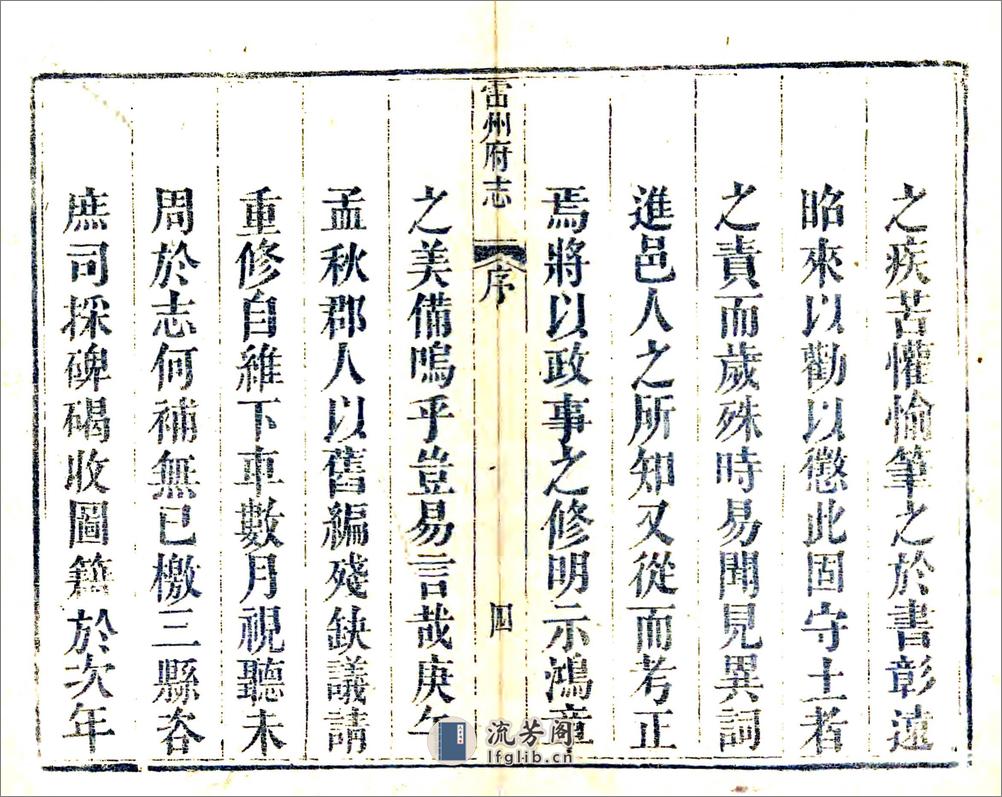 之疾苦懽愉筆之於書彰遠
昭來以勸以懲此固守土者
之責而歲殊時易聞見異詞
進邑人之所知又從而考正
焉將以政事之修明示鴻章
雷州府志
序
四
之美備嗚乎豈易言哉庚午
孟秋郡人以舊編殘缺議請
重修自維下車數月視聽未
周於志何補無已檄三縣咨
庶司採碑碣收圖籍於次年
流芳阁
lfglib.cn